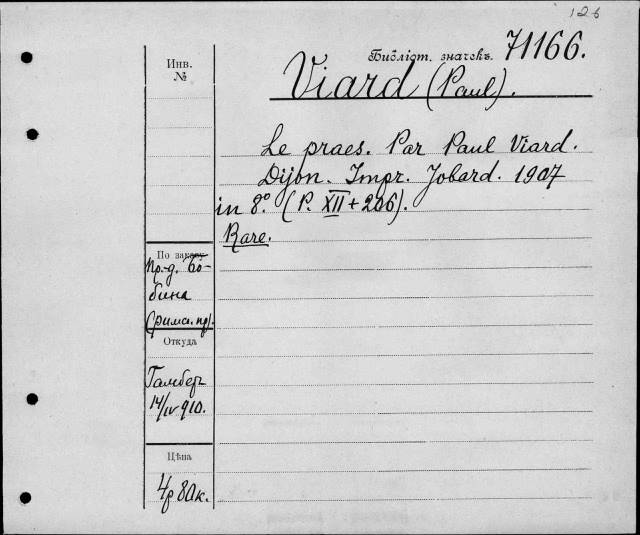 126
Библіот. значекъ. 71166.
Viard (Paul).
Инв.
№
Le praes. Par Paul Viard.
Dijon. Impr. Jobard. 1907
in 8.° (P. XII + 206).
Rare.
По заказу
Пр-д. Бо-
бина
(римск. пр).
Откуда
Гамбер
14/IV 910.
Цѣна
4р 80к.